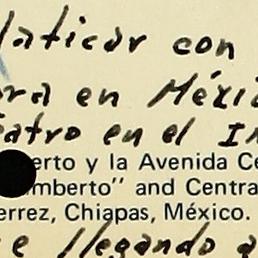 laticar con
ora en Méxi
eatro en el In
erto y la Avenida Ce
mberto" and Centra
errez, Chiapas, México.
e llegando a